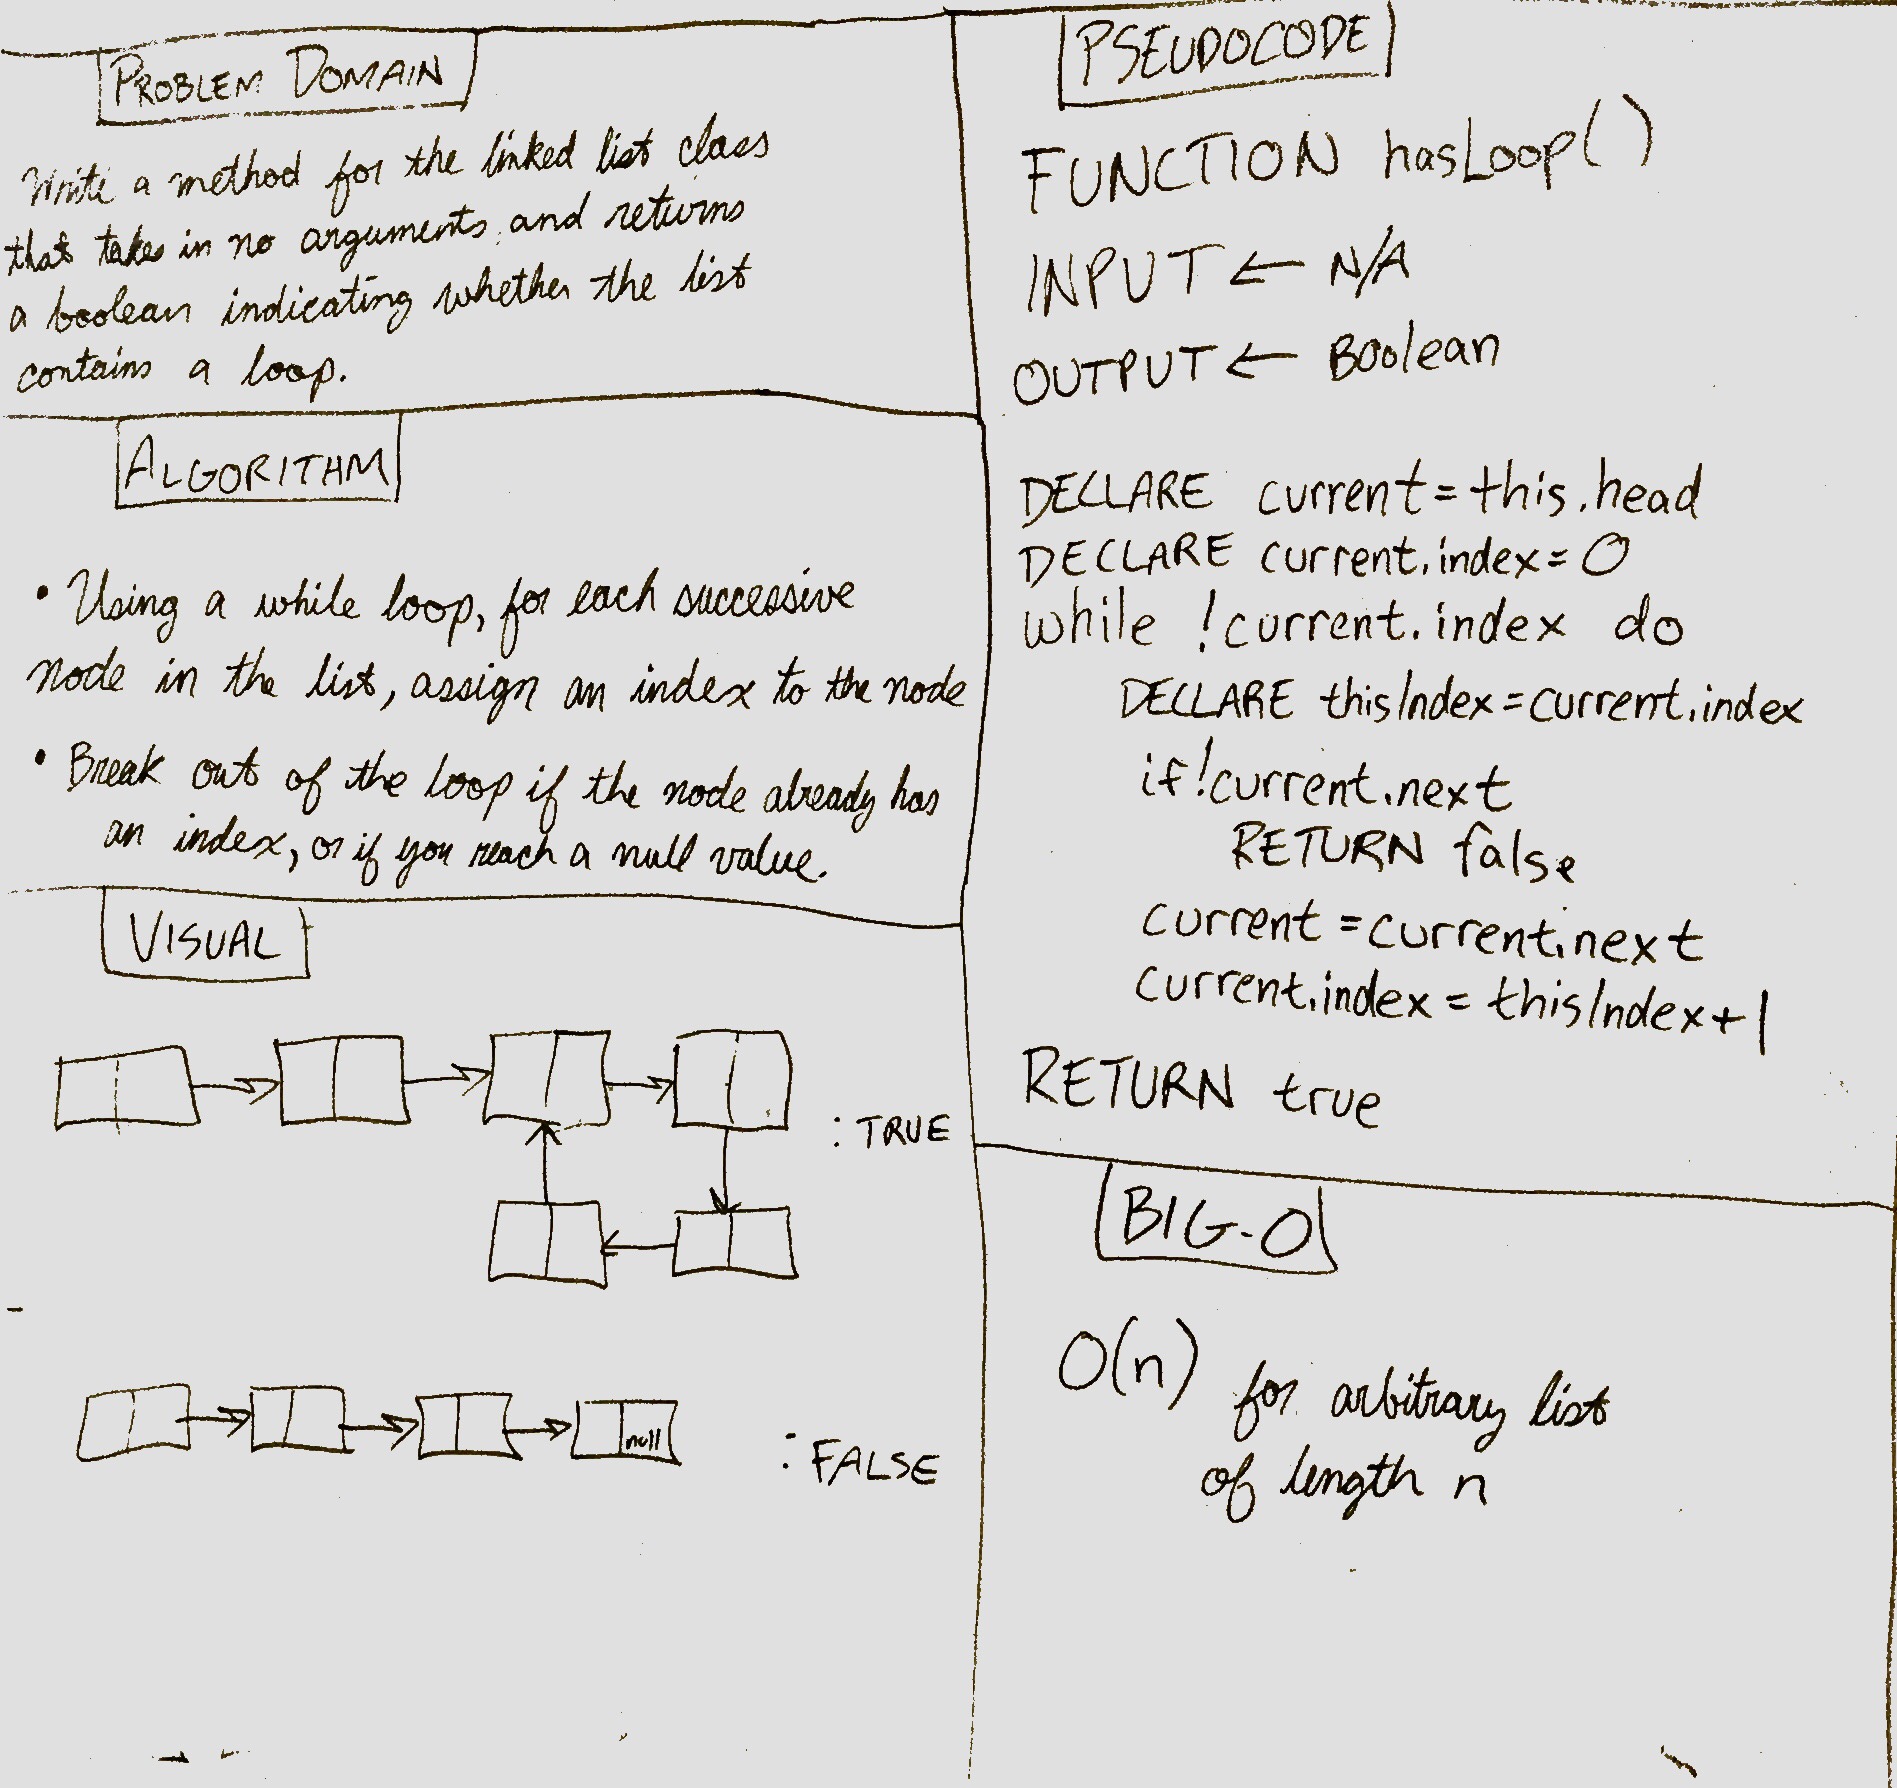 PROBLEM DOMAIN
Write a method for the linked list class
that takes in no arguments, and returns
a boolean indicating whether the list
contains a loop.
ALGORITHM
• Using a while loop, for each successive
node in the list, assign an index to the node
• Break out of the loop if the node already has
an index, or if you reach a null value.
VISUAL
: TRUE
null
: FALSE
PSEUDOCODE
FUNCTION hasLoop()
INPUT ← N/A
OUTPUT ← Boolean
DECLARE current = this.head
DECLARE current.index = 0
while !current.index do
DECLARE thisIndex = current.index
if !current.next
RETURN false
current = current.next
current.index = thisIndex + 1
RETURN true
BIG-O
O(n) for arbitrary list
of length n